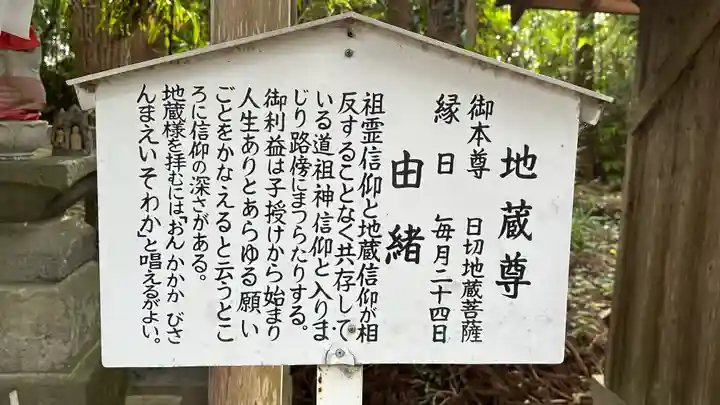 地蔵尊
御本尊 日切地蔵菩薩
縁日 毎月二十四日
由緒
祖霊信仰と地蔵信仰が相
反することなく共存して
いる道祖神信仰と入りま
じり路傍にまつらたりする。
御利益は子授けから始まり
人生ありとあらゆる願い
ごとをかなえると云うとこ
ろに信仰の深さがある。
地蔵様を拝むには「おん かかか びさ
んまえい そわか」と唱えるがよい。